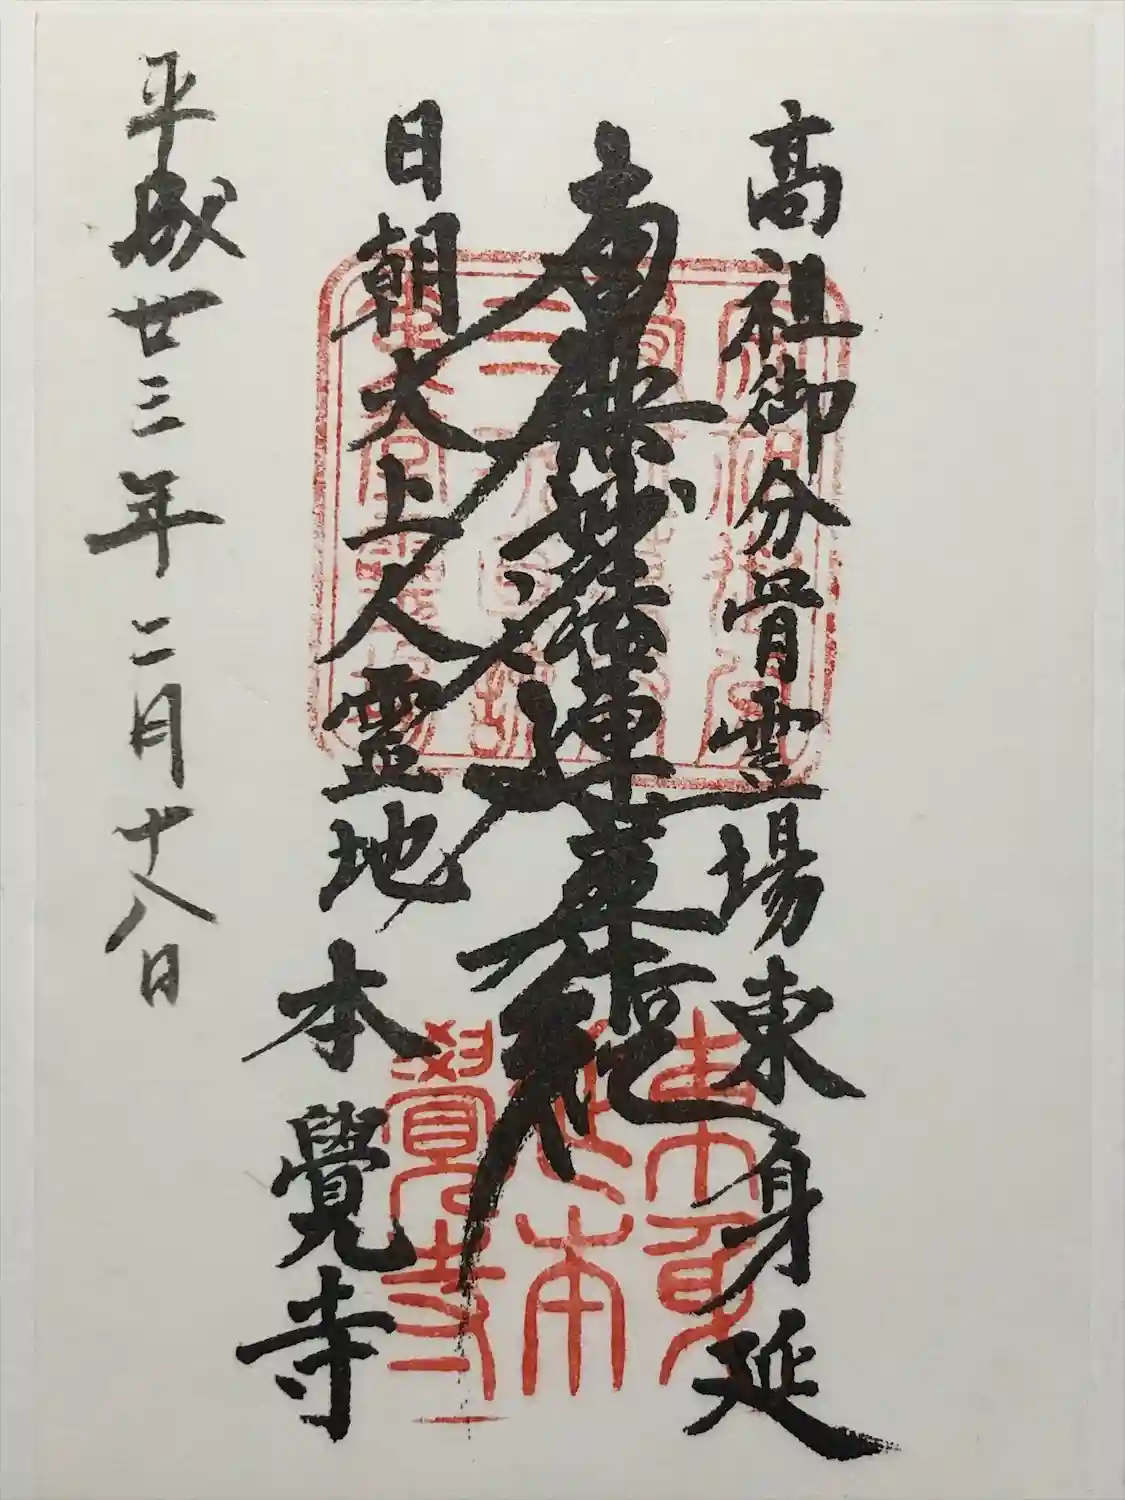 高祖御分骨霊場東身延
南無妙法蓮華経
日朝大上人霊地本覺寺
平成廿三年二月十八日
東身
延本
覺寺